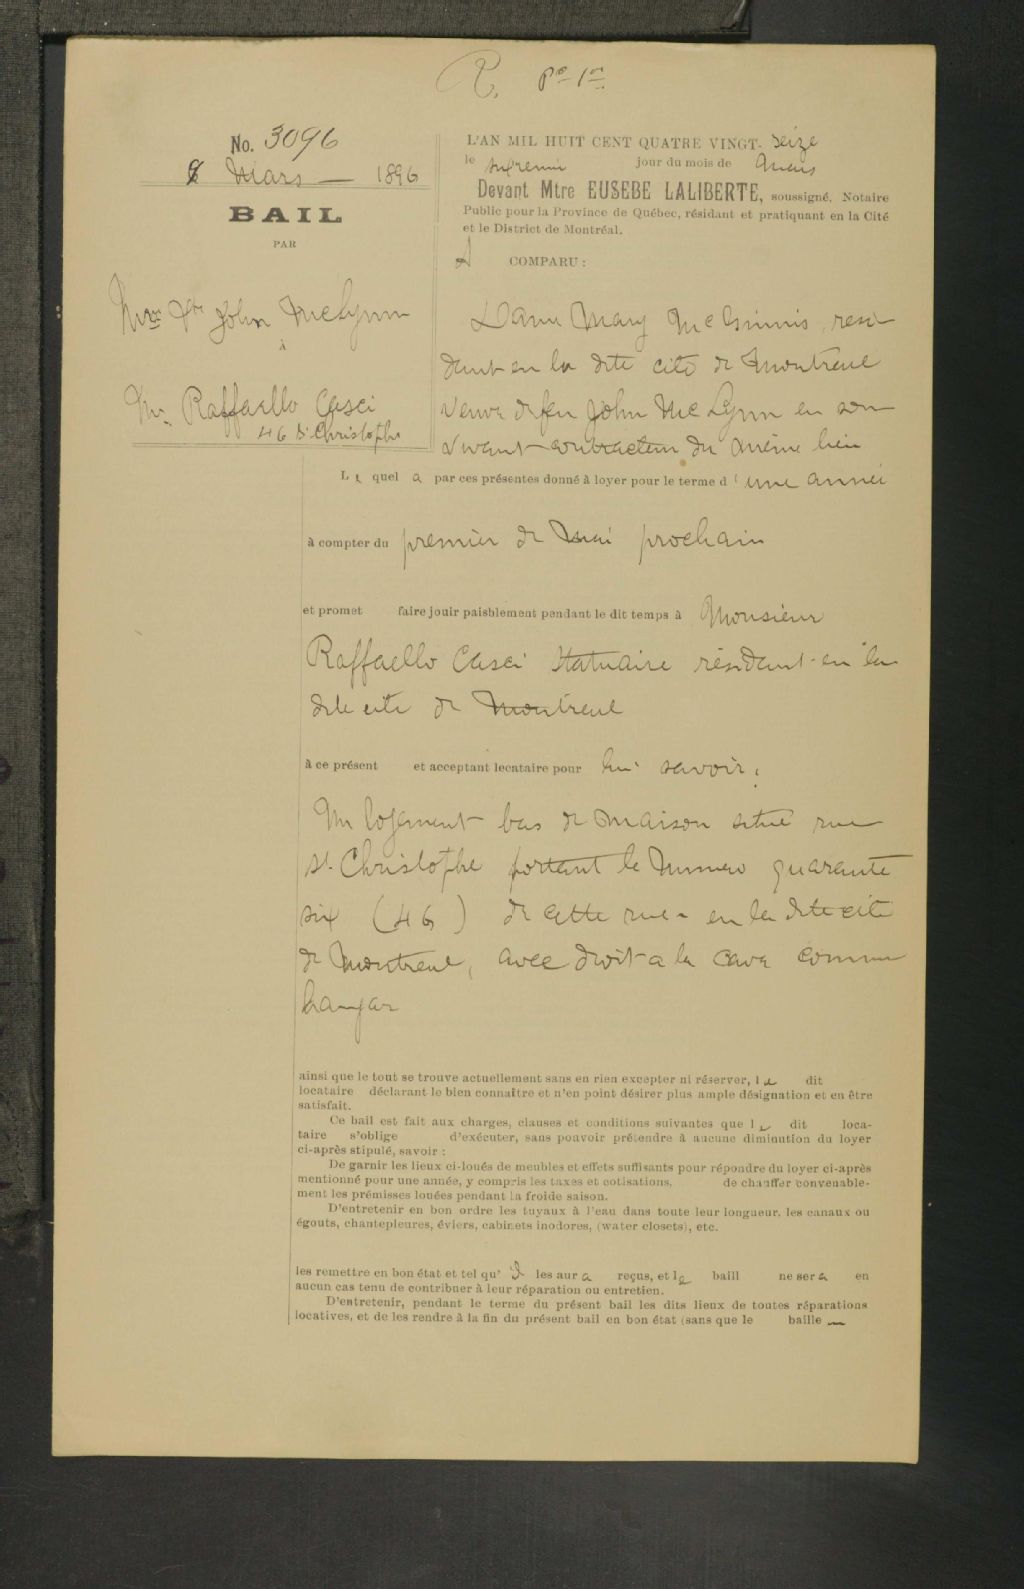 R. Po 1er
No. 3096
8 Mars — 1896
BAIL
PAR
Mrs Vve John McLynn
à
Mr. Raffaello Casci
46 St Christophe
L'AN MIL HUIT CENT QUATRE VINGT- seize
le jour du mois de Mars
Devant Mtre EUSEBE LALIBERTE, soussigné, Notaire
Public pour la Province de Québec, résidant et pratiquant en la Cité
et le District de Montréal.
A COMPARU :
Dame Mary McGinnis, resi-
dant en la dite cité de Montreal
veuve de feu John McLynn en son
vivant contracteur du même lieu
Le quel a par ces présentes donné à loyer pour le terme d'une année
à compter du premier de Mai prochain
et promet faire jouir paisiblement pendant le dit temps à Monsieur
Raffaello Casci Statuaire résidant en la
dite cité de Montreal
à ce présent et acceptant locataire pour lui savoir.
Un logement bas de maison situé rue
St. Christophe portant le Numero quarante
six (46) de cette rue en la dite cité
de Montreal, avec droit a la cave comme
hangar
ainsi que le tout se trouve actuellement sans en rien excepter ni réserver, le dit
locataire déclarant le bien connaître et n'en point désirer plus ample désignation et en être
satisfait.
Ce bail est fait aux charges, clauses et conditions suivantes que le dit loca-
taire s'oblige d'exécuter, sans pouvoir prétendre à aucune diminution du loyer
ci-après stipulé, savoir :
De garnir les lieux ci-loués de meubles et effets suffisants pour répondre du loyer ci-après
mentionné pour une année, y compris les taxes et cotisations, de chauffer convenable-
ment les prémisses louées pendant la froide saison.
D'entretenir en bon ordre les tuyaux à l'eau dans toute leur longueur, les canaux ou
égouts, chantepleures, éviers, cabinets inodores, (water closets), etc.
les remettre en bon état et tel qu'il les aura reçus, et le baill ne sera en
aucun cas tenu de contribuer à leur réparation ou entretien.
D'entretenir, pendant le terme du présent bail les dits lieux de toutes réparations
locatives, et de les rendre à la fin du présent bail en bon état (sans que le baille